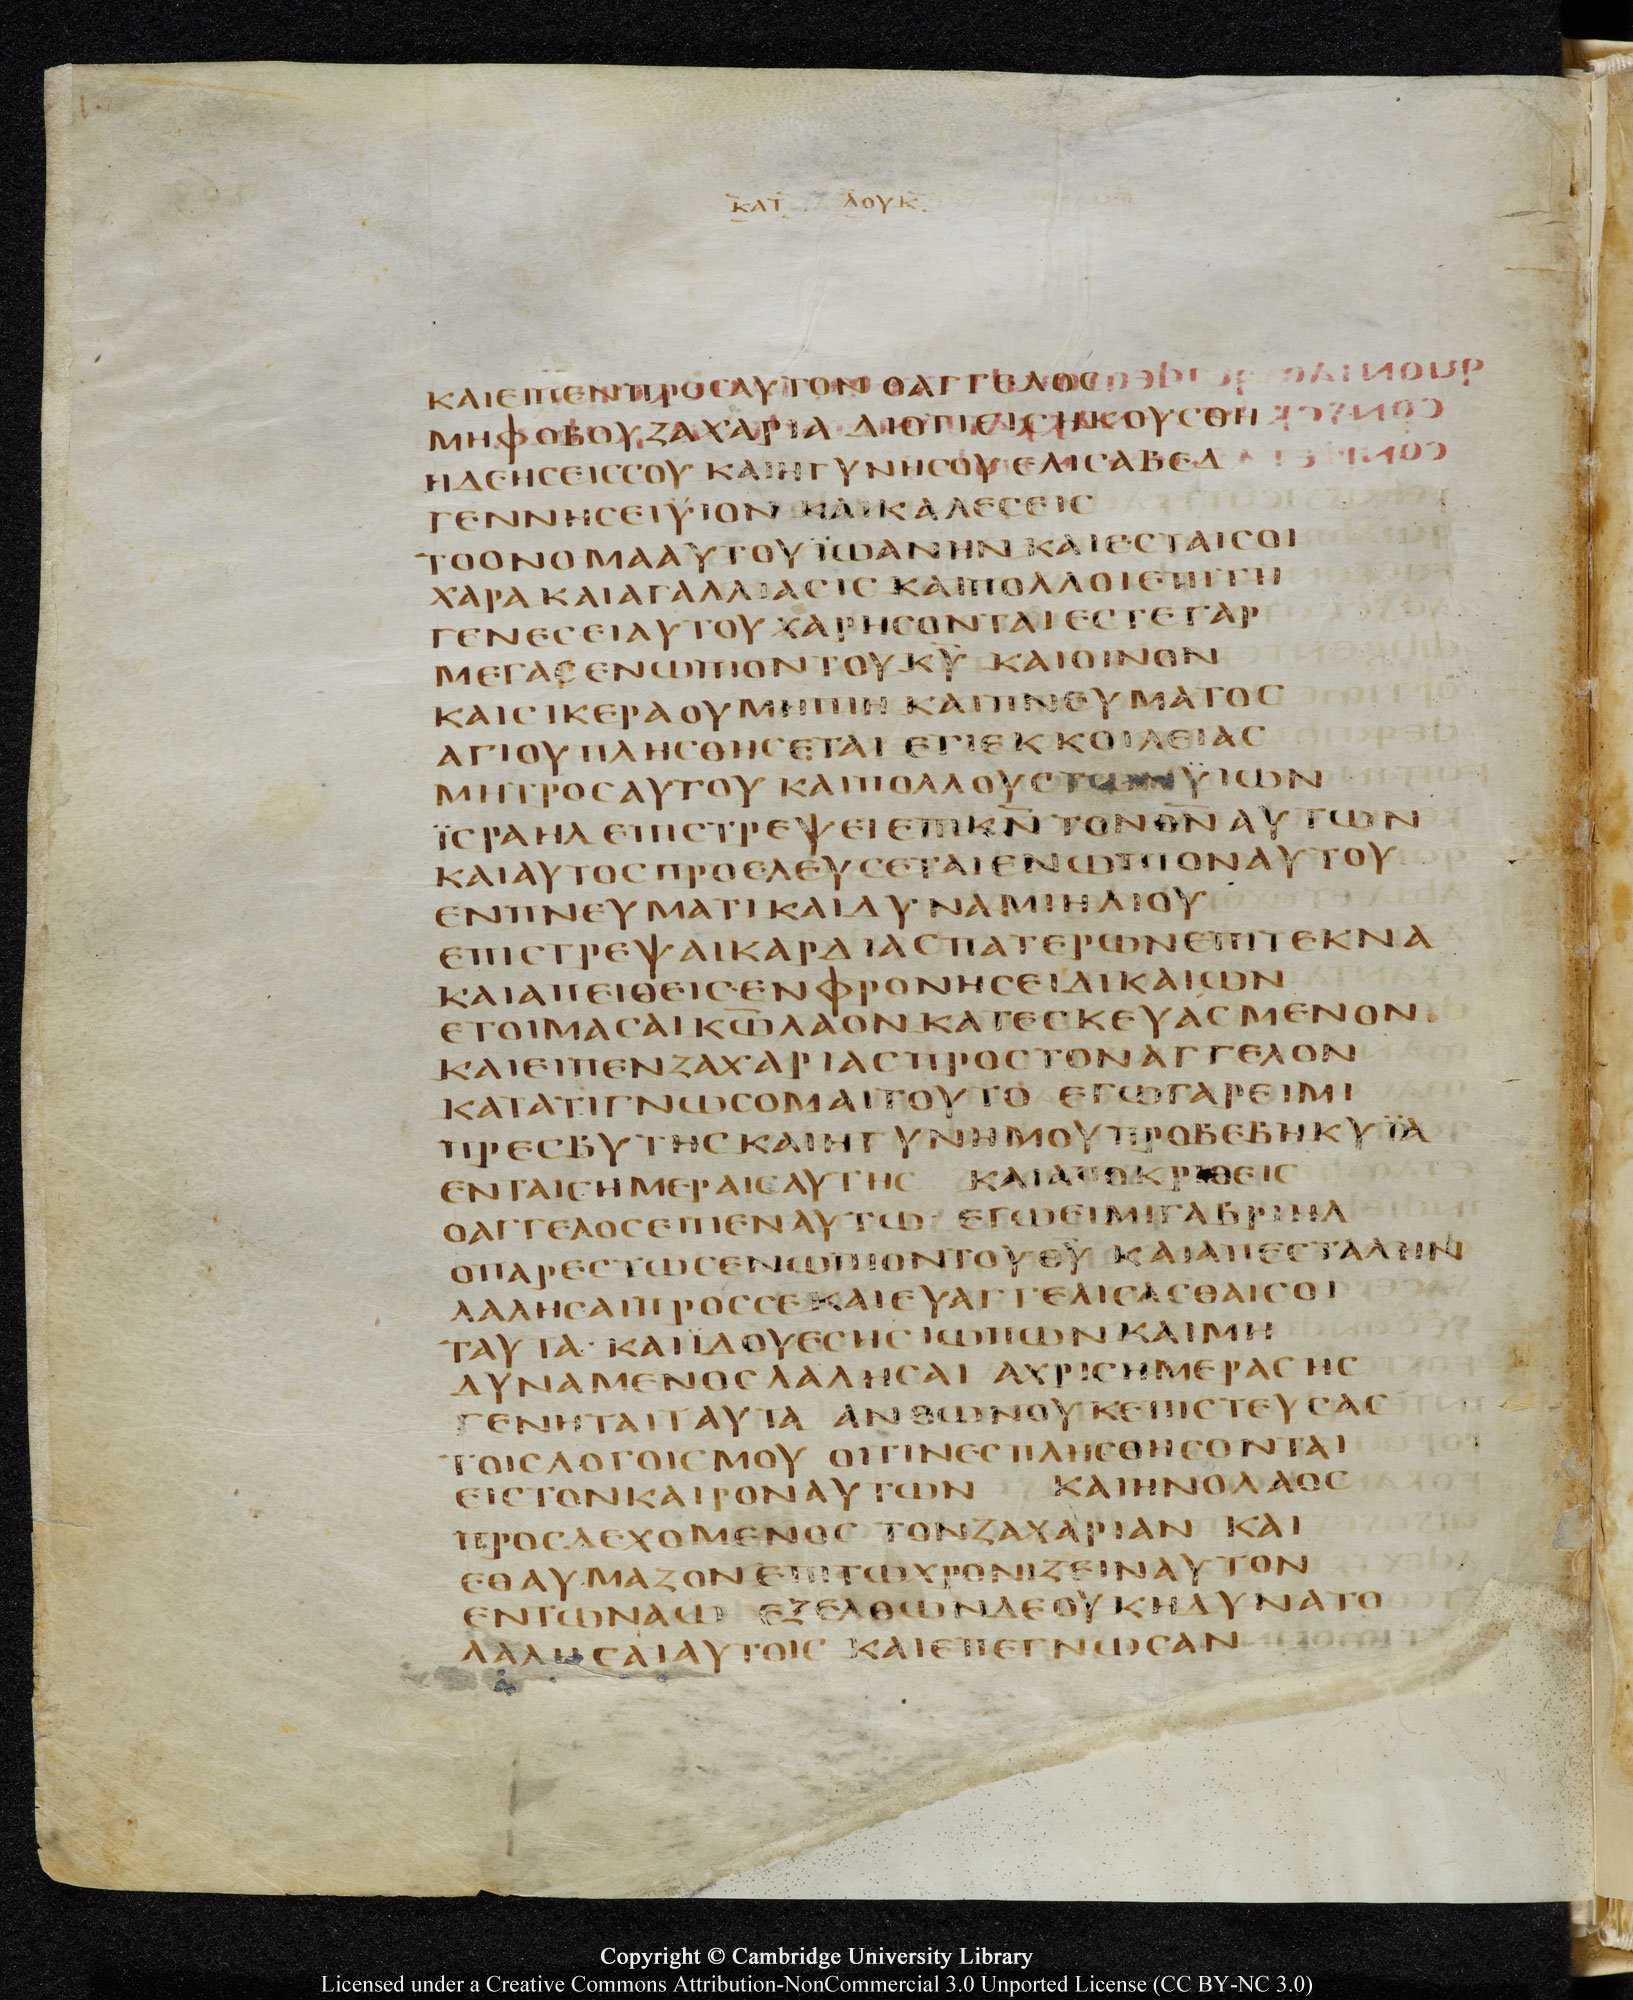 ΚΑΤ ΛΟΥΚ
ΚΑΙΕΙΠΕΝΠΡΟCΑΥΤΟΝ ΟΑΓΓΕΛΟC
ΜΗΦΟΒΟΥΖΑΧΑΡΙΑ ΔΙΟΤΙΕΙCΗΚΟΥCΘΗ
ΗΔΕΗCΕΙCCΟΥ ΚΑΙΗΓΥΝΗCΟΥΕΛΙCΑΒΕΔ
ΓΕΝΝΗCΕΙΫΙΟΝ ΚΑΙΚΑΛΕCΕΙC
ΤΟΟΝΟΜΑΑΥΤΟΥΪΩΑΝΗΝ ΚΑΙΕCΤΑΙCΟΙ
ΧΑΡΑ ΚΑΙΑΓΑΛΛΙΑCΙC ΚΑΙΠΟΛΛΟΙΕΠΙΤΗ
ΓΕΝΕCΕΙΑΥΤΟΥ ΧΑΡΗCΟΝΤΑΙ ΕCΤΕΓΑΡ
ΜΕΓΑC ΕΝΩΠΙΟΝΤΟΥΚ̅Υ̅ ΚΑΙΟΙΝΟΝ
ΚΑΙCΙΚΕΡΑ ΟΥΜΗΠΙΗ ΚΑΙΠΝΕΥΜΑΤΟC
ΑΓΙΟΥΠΛΗCΘΗCΕΤΑΙ ΕΤΙΕΚΚΟΙΛΕΙΑC
ΜΗΤΡΟCΑΥΤΟΥ ΚΑΙΠΟΛΛΟΥCΤΩΝΫΙΩΝ
ΪCΡΑΗΛ ΕΠΙCΤΡΕΨΕΙΕΠΙΚ̅Ν̅ ΤΟΝΘ̅Ν̅ ΑΥΤΩΝ
ΚΑΙΑΥΤΟCΠΡΟΕΛΕΥCΕΤΑΙΕΝΩΠΙΟΝΑΥΤΟΥ
ΕΝΠΝΕΥΜΑΤΙΚΑΙΔΥΝΑΜΙΗΛΙΟΥ
ΕΠΙCΤΡΕΨΑΙΚΑΡΔΙΑCΠΑΤΕΡΩΝΕΠΙΤΕΚΝΑ
ΚΑΙΑΠΕΙΘΕΙC·ΕΝΦΡΟΝΗCΕΙΔΙΚΑΙΩΝ
ΕΤΟΙΜΑCΑΙΚ̅Ω̅ΛΑΟΝΚΑΤΕCΚΕΥΑCΜΕΝΟΝ
ΚΑΙΕΙΠΕΝΖΑΧΑΡΙΑCΠΡΟCΤΟΝΑΓΓΕΛΟΝ
ΚΑΤΑΤΙΓΝΩCΟΜΑΙΤΟΥΤΟ ΕΓΩΓΑΡΕΙΜΙ
ΠΡΕCΒΥΤΗCΚΑΙΗΓΥΝΗΜΟΥΠΡΟΒΕΒΗΚΥΪΑ
ΕΝΤΑΙCΗΜΕΡΑΙCΑΥΤΗC ΚΑΙΑΠΟΚΡΙΘΕΙC
ΟΑΓΓΕΛΟCΕΙΠΕΝΑΥΤΩ ΕΓΩΕΙΜΙΓΑΒΡΙΗΛ
ΟΠΑΡΕCΤΩCΕΝΩΠΙΟΝΤΟΥΘ̅Υ̅ ΚΑΙΑΠΕCΤΑΛΗΝ
ΛΑΛΗCΑΙΠΡΟCCΕΚΑΙΕΥΑΓΓΕΛΙCΑCΘΑΙCΟΙ
ΤΑΥΤΑ· ΚΑΙΪΔΟΥΕCΗCΙΩΠΩΝΚΑΙΜΗ
ΔΥΝΑΜΕΝΟCΛΑΛΗCΑΙ ΑΧΡΙCΗΜΕΡΑCΗC
ΓΕΝΗΤΑΙΤΑΥΤΑ ΑΝΘΩΝΟΥΚΕΠΙCΤΕΥCΑC
ΤΟΙCΛΟΓΟΙCΜΟΥ ΟΙΤΙΝΕCΠΛΗCΘΗCΟΝΤΑΙ
ΕΙCΤΟΝΚΑΙΡΟΝΑΥΤΩΝ ΚΑΙΗΝΟΛΑΟC
ΠΡΟCΔΕΧΟΜΕΝΟC ΤΟΝΖΑΧΑΡΙΑΝ ΚΑΙ
ΕΘΑΥΜΑΖΟΝΕΠΙΤΩΧΡΟΝΙΖΕΙΝΑΥΤΟΝ
ΕΝΤΩΝΑΩ ΕΞΕΛΘΩΝΔΕΟΥΚΗΔΥΝΑΤΟ
ΛΑΛΗCΑΙΑΥΤΟΙC ΚΑΙΕΠΕΓΝΩCΑΝ
Copyright © Cambridge University Library
Licensed under a Creative Commons Attribution-NonCommercial 3.0 Unported License (CC BY-NC 3.0)